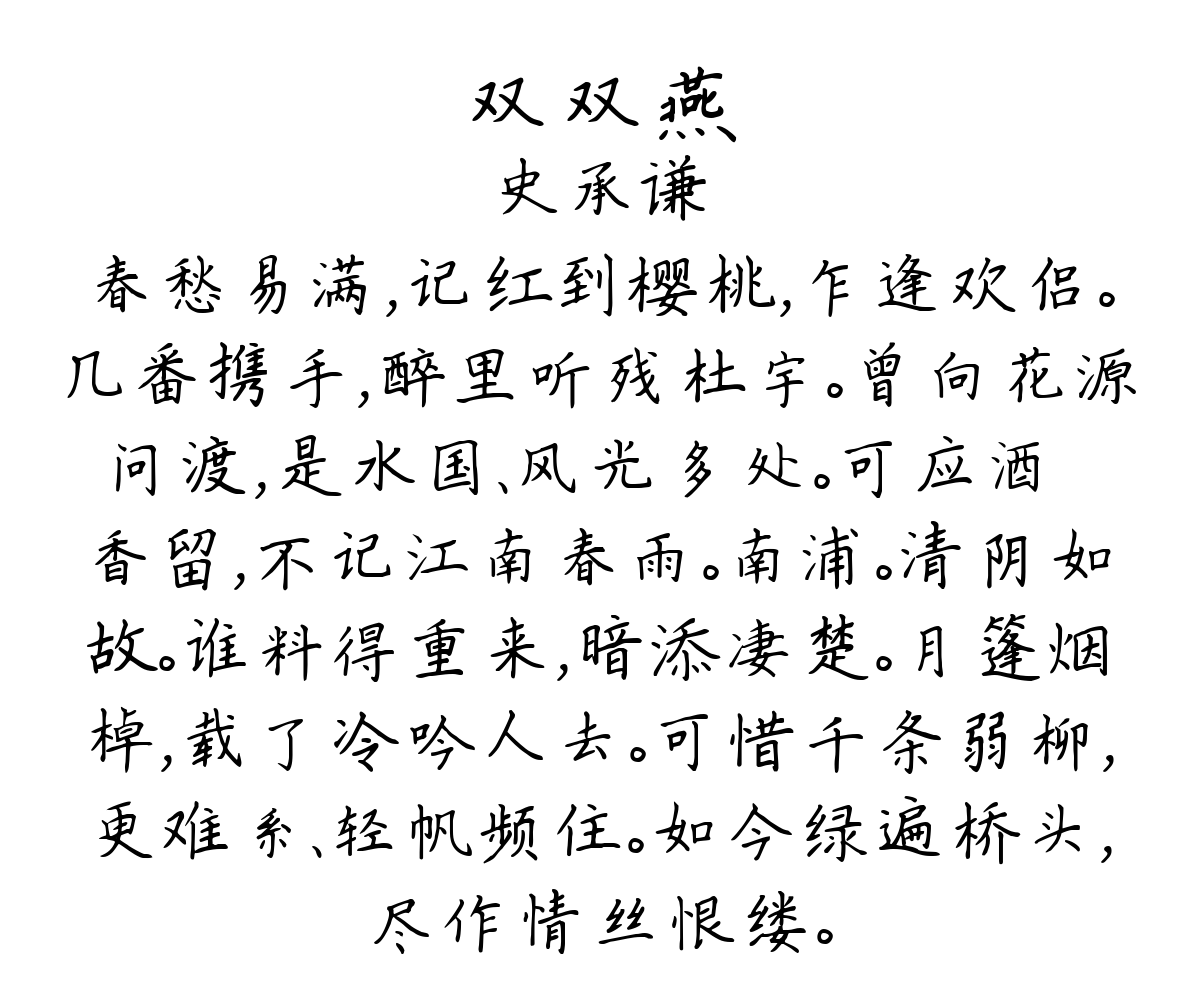 双双燕
史承谦
春愁易满,记红到樱桃,乍逢欢侣。
几番携手,醉里听残杜宇。曾向花源
问渡,是水国、风光多处。可应酒
香留,不记江南春雨。南浦。清阴如
故。谁料得重来,暗添凄楚。月篷烟
棹,载了冷吟人去。可惜千条弱柳,
更难系、轻帆频住。如今绿遍桥头,
尽作情丝恨缕。